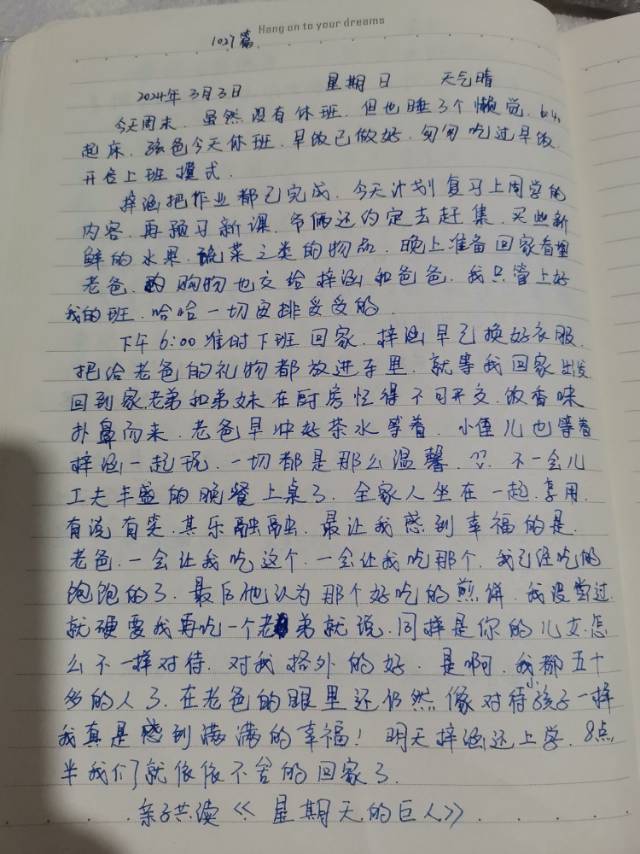 Hang on to your dreams
1027篇
2024年3月3日 星期日 天气晴
今天周末,虽然没有休班,但也睡了个懒觉,6:40
起床,孩爸今天休班,早饭已做好,匆匆吃过早饭,
开启上班模式.
梓涵把作业都已完成,今天计划复习上周学的
内容,再预习新课,爷俩还约定去赶集,买些新
鲜的水果,蔬菜之类的物品,晚上准备回家看望
老爸,购物也交给梓涵和爸爸,我只管上好
我的班,哈哈一切安排妥妥的.
下午6:00准时下班回家,梓涵早已换好衣服,
把给老爸的礼物都放进车里,就等我回家出发
回到家,老弟和弟妹在厨房忙得不可开交,饭香味
扑鼻而来,老爸早冲好茶水等着,小侄儿也等着
梓涵一起玩,一切都是那么温馨,不一会儿
工夫丰盛的晚餐上桌了,全家人坐在一起,享用,
有说有笑,其乐融融,最让我感到幸福的是,
老爸,一会让我吃这个,一会让我吃那个,我已经吃的
饱饱的了,最后他认为那个好吃的煎饼,我没尝过,
就硬要我再吃一个,老弟就说,同样是你的儿女,怎
么不一样对待,对我格外的好,是啊,我都五十
多的人了,在老爸的眼里还仍然像对待小孩子一样
我真是感到满满的幸福!明天梓涵还上学,8点
半我们就依依不舍的回家了.
亲子共读《星期天的巨人》